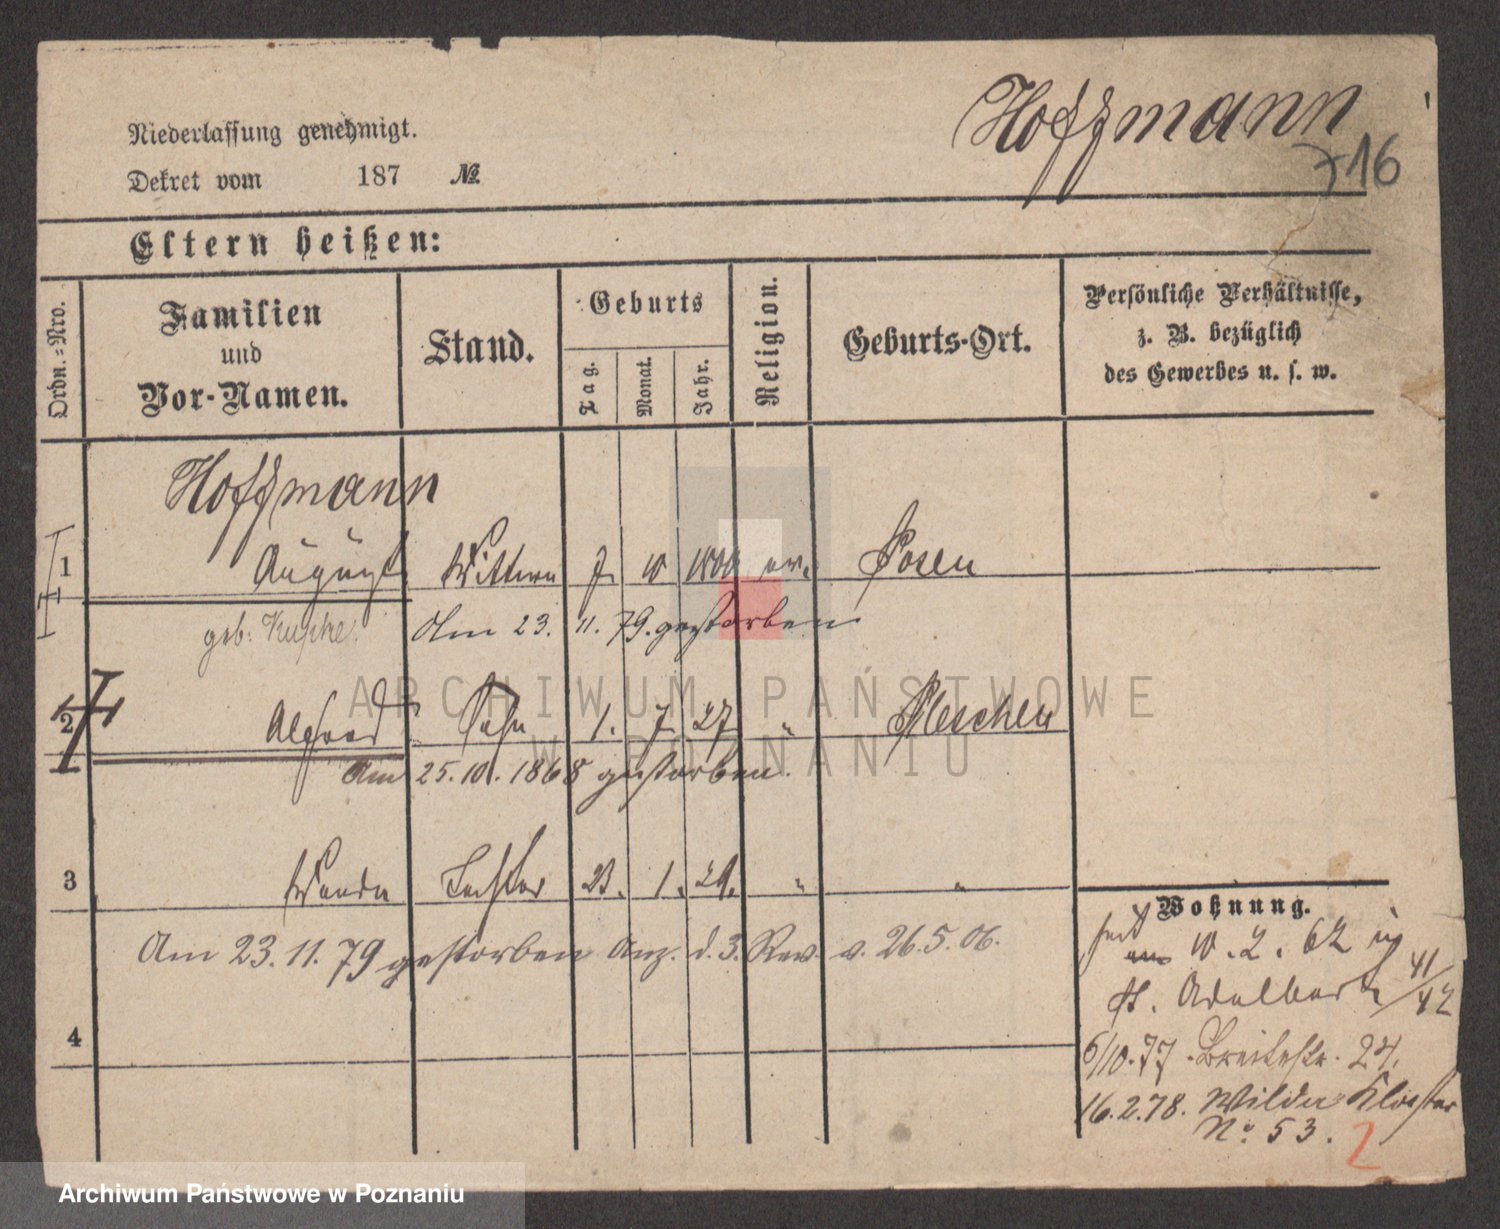 Hoffmann
716
Niederlassung genehmigt.
Dekret vom 187 №
Eltern heißen:
Ordn.-Nro.
Familien
und
Vor-Namen.
Stand.
Geburts
Tag.
Monat.
Jahr.
Religion.
Geburts-Ort.
Persönliche Verhältnisse,
z. B. bezüglich
des Gewerbes u. s. w.
Hoffmann
1 August Wittwe 7. 10 1800 ev. Posen
geb: Kupke. Am 23. 11. 79. gestorben
2 Alfred Sohn 1. 7. 27 " Pleschen
Am 25. 10. 1868 gestorben.
3 Wanda Tochter 23. 1. 29. " "
Am 23. 11. 79 gestorben Anz. d. 3. Rev. v. 26. 5. 06.
4
Wohnung.
seit 10. 2. 62 in
St. Adalbert 41/42
6/10. 77. Breitestr. 24.
16. 2. 78. Wilda Kloster
No. 53. 2
ARCHIWUM PAŃSTWOWE
W POZNANIU
Archiwum Państwowe w Poznaniu